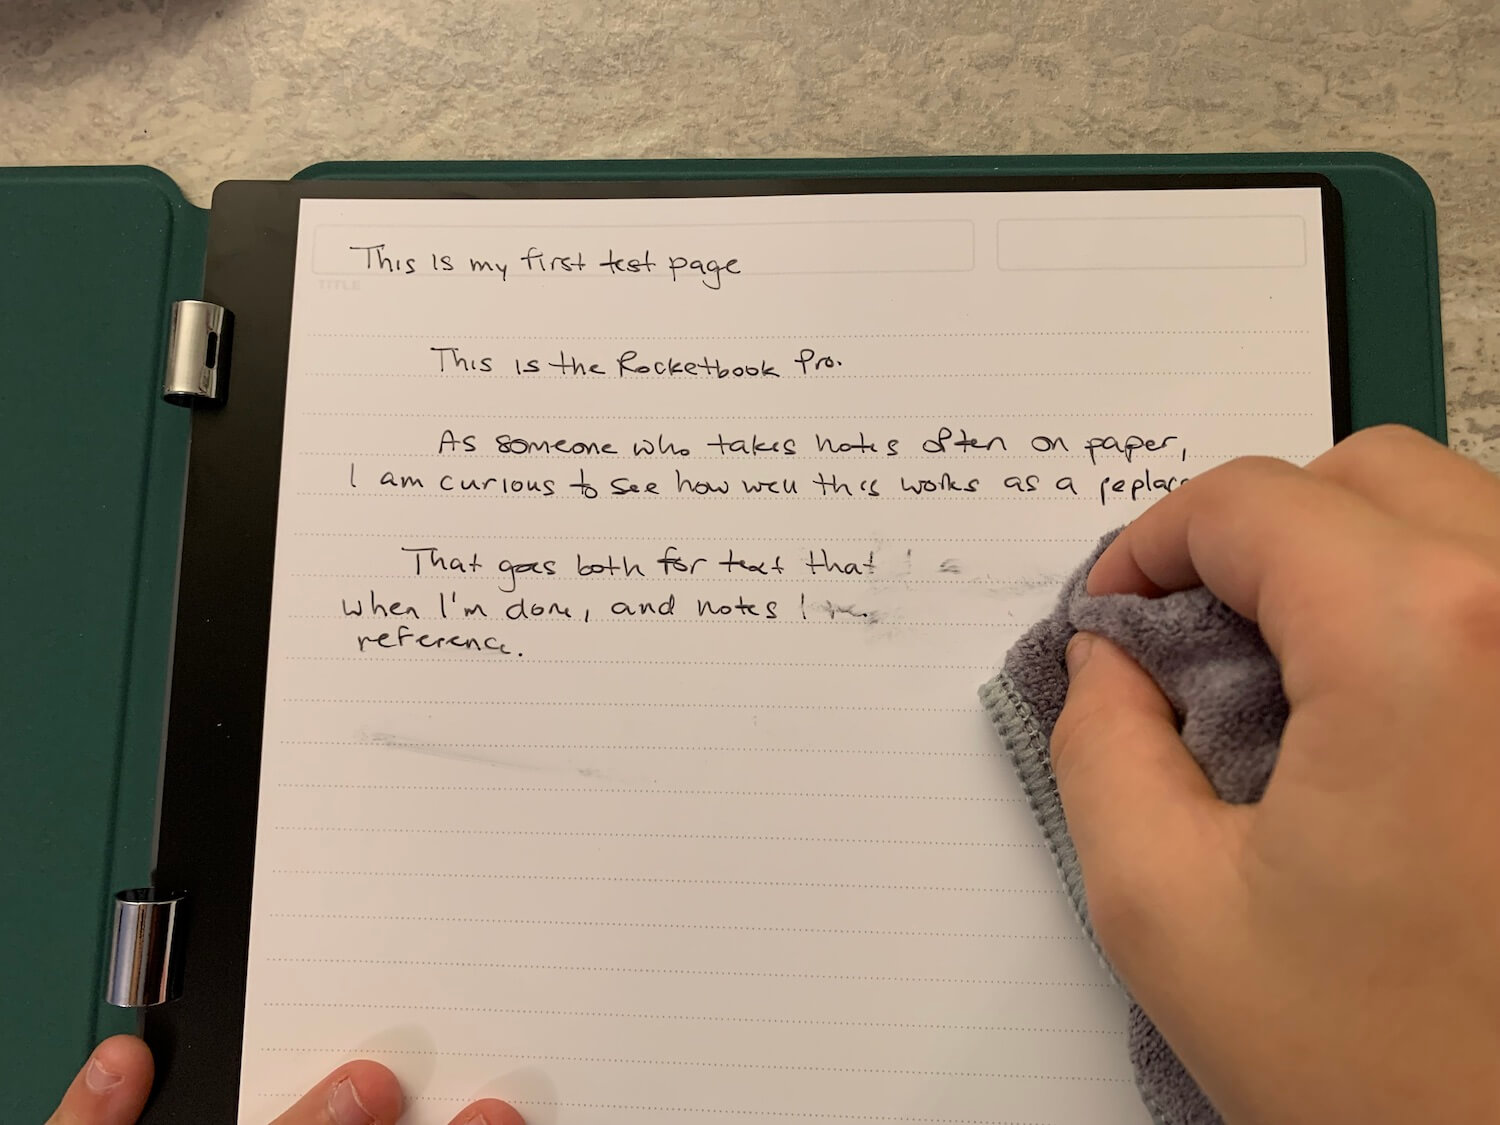 This is my first test page
TITLE
This is the Rocketbook Pro.
As someone who takes notes often on paper,
I am curious to see how well this works as a
That goes both for text that I
when I'm done, and notes I
reference.